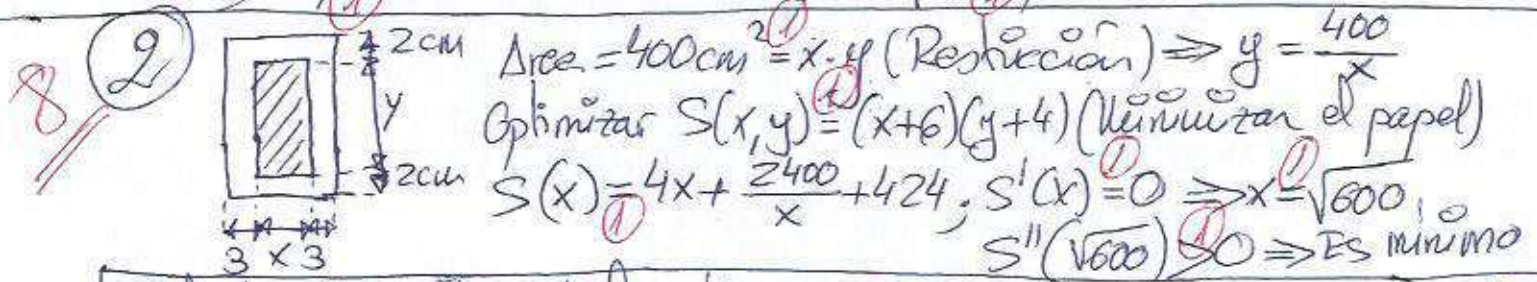 8 2
2cm
Area = 400cm² = x·y (Restricción) ⇒ y = 400/x
y
Optimizar S(x,y) = (x+6)(y+4) (Minimizar el papel)
2cm
S(x) = 4x + 2400/x + 424; S'(x) = 0 ⇒ x = √600
3 x 3
S''(√600) > 0 ⇒ Es mínimo
1
1
1
1
1
1
1